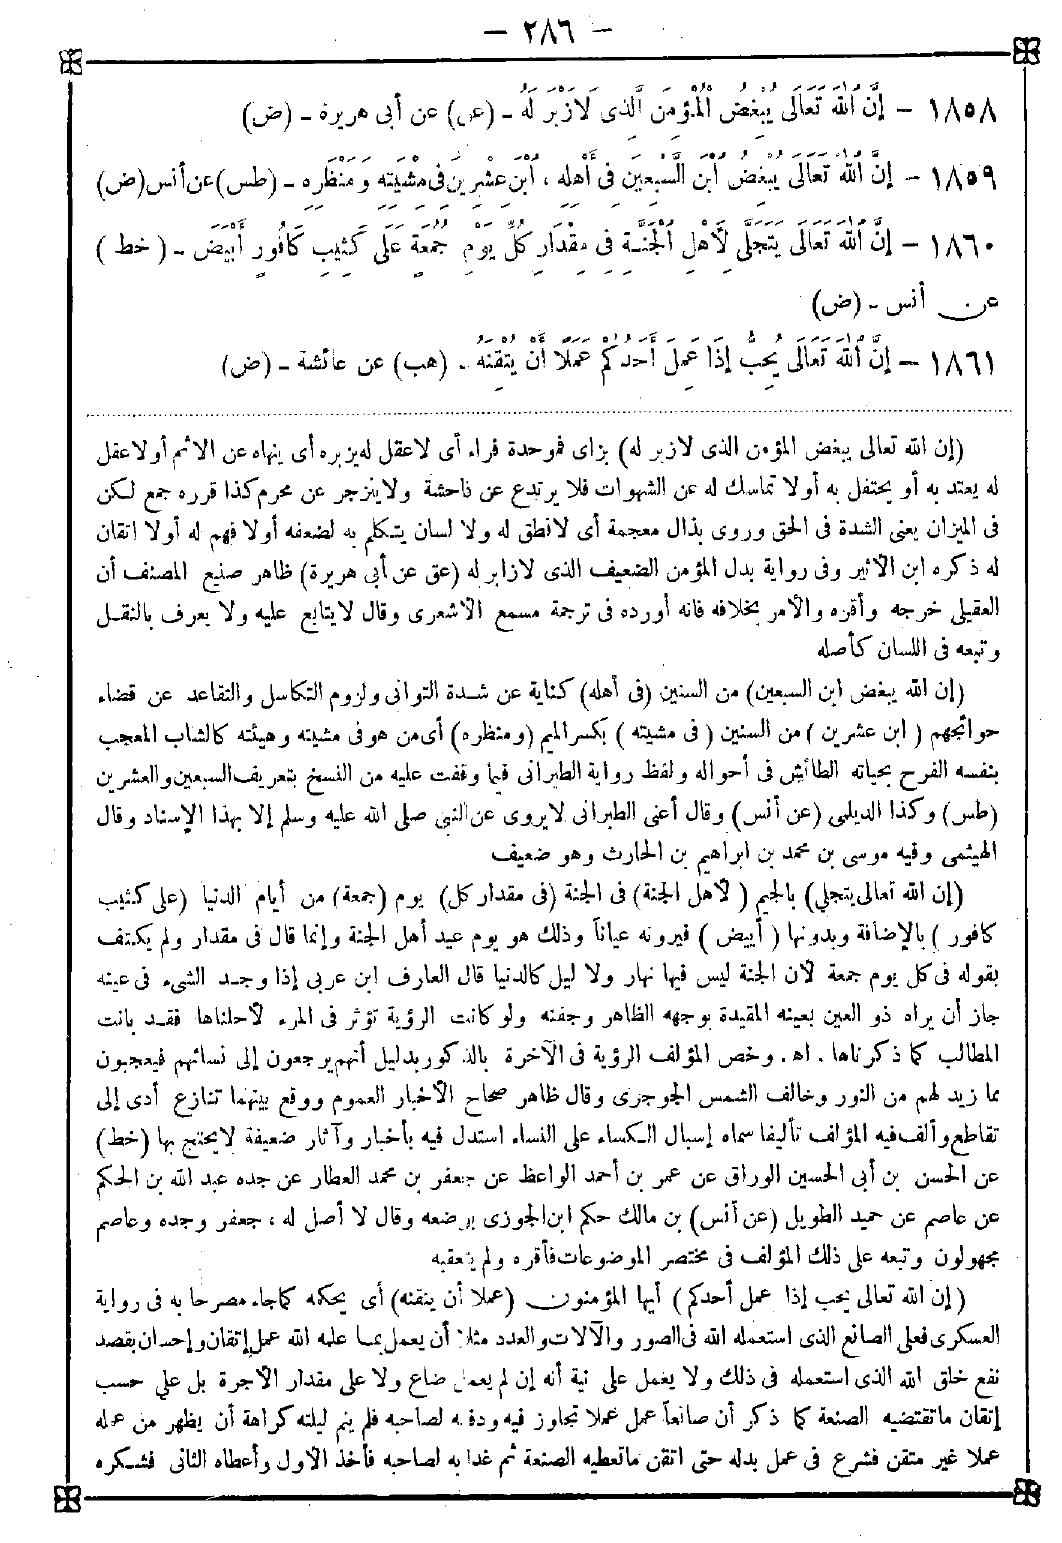 — ٢٨٦ —
١٨٥٨ — إِنَّ اللهَ تَعَالَى يُبْغِضُ الْمُؤْمِنَ الَّذِى لَا زَبْرَ لَهُ - (عق) عن أبى هريرة - (ض)
١٨٥٩ — إِنَّ اللهَ تَعَالَى يُبْغِضُ ابْنَ السَّبْعِينَ فِى أَهْلِهِ ، ابْنَ عِشْرِينَ فِى مِشْيَتِهِ وَمَنْظَرِهِ - (طس) عن أنس (ض)
١٨٦٠ — إِنَّ اللهَ تَعَالَى يَتَجَلَّى لِأَهْلِ الْجَنَّةِ فِى مِقْدَارِ كُلِّ يَوْمِ جُمُعَةٍ عَلَى كَثِيبِ كَافُورٍ أَبْيَضَ - ( خط )
عن أنس - (ض)
١٨٦١ — إِنَّ اللهَ تَعَالَى يُحِبُّ إِذَا عَمِلَ أَحَدُكُمْ عَمَلًا أَنْ يُتْقِنَهُ - (هب) عن عائشة - (ض)
(إن الله تعالى يبغض المؤمن الذى لا زبر له) بزاى فموحدة فراء أى لا عقل له يزبره أى ينهاه عن الاثم أو لا عقل
له يعتد به أو يحتفل به أو لا تماسك له عن الشهوات فلا يرتدع عن فاحشة ولا ينزجر عن محرم كذا قرره جمع لكن
فى الميزان يعنى الشدة فى الحق وروى بذال معجمة أى لا نطق له ولا لسان يتكلم به لضعفه أو لا فهم له أو لا اتقان
له ذكره ابن الأثير وفى رواية بدل المؤمن الضعيف الذى لا زابر له (عق عن أبى هريرة) ظاهر صنيع المصنف أن
العقيلى خرجه وأقره والأمر بخلافه فانه أورده فى ترجمة مسمع الأشعرى وقال لا يتابع عليه ولا يعرف بالنقل
وتبعه فى اللسان كأصله
(إن الله يبغض ابن السبعين) من السنين (فى أهله) كناية عن شدة التوانى ولزوم التكاسل والتقاعد عن قضاء
حوائجهم ( ابن عشرين ) من السنين ( فى مشيته ) بكسر الميم (ومنظره) أى من هو فى مشيته وهيئته كالشاب المعجب
بنفسه الفرح بحياته الطائش فى أحواله ولفظ رواية الطبرانى فيما وقفت عليه من النسخ بتعريف السبعين والعشرين
(طس) وكذا الديلمى (عن أنس) وقال أعنى الطبرانى لا يروى عن النبي صلى الله عليه وسلم إلا بهذا الإسناد وقال
الهيثمى وفيه موسى بن محمد بن ابراهيم بن الحارث وهو ضعيف
(إن الله تعالى يتجلي) بالجيم ( لأهل الجنة) فى الجنة (فى مقدار كل) يوم (جمعة) من أيام الدنيا (على كثيب
كافور ) بالإضافة وبدونها ( أبيض ) فيرونه عياناً وذلك هو يوم عيد أهل الجنة وإنما قال فى مقدار ولم يكتف
بقوله فى كل يوم جمعة لأن الجنة ليس فيها نهار ولا ليل كالدنيا قال العارف ابن عربى إذا وجد الشىء فى عينه
جاز أن يراه ذو العين بعينه المقيدة بوجهه الظاهر وجفنه ولو كانت الرؤية تؤثر فى المرء لأحلناها فقد بانت
المطالب كما ذكرناها . اه . وخص المؤلف الرؤية فى الآخرة بالذكور بدليل أنهم يرجعون إلى نسائهم فيعجبون
مما زيد لهم من النور وخالف الشمس الجوجرى وقال ظاهر صحاح الأخبار العموم ووقع بينهما تنازع أدى إلى
تقاطع وألف فيه المؤلف تأليفا سماه إسبال الكساء على النساء استدل فيه بأخبار وآثار ضعيفة لا يحتج بها (خط)
عن الحسن بن أبى الحسين الوراق عن عمر بن أحمد الواعظ عن جعفر بن محمد العطار عن جده عبد الله بن الحكم
عن عاصم عن حميد الطويل (عن أنس) بن مالك حكم ابن الجوزى بوضعه وقال لا أصل له ، جعفر وجده وعاصم
مجهولون وتبعه على ذلك المؤلف فى مختصر الموضوعات فأقره ولم يتعقبه
(إن الله تعالى يحب إذا عمل أحدكم) أيها المؤمنون (عملا أن يتقنه) أى يحكمه كما جاء مصرحا به فى رواية
العسكرى فعلى الصانع الذى استعمله الله فى الصور والآلات والعدد مثلا أن يعمل بما علمه الله عمل إتقان وإحسان بقصد
نفع خلق الله الذى استعمله فى ذلك ولا يعمل على نية أنه إن لم يعمل ضاع ولا على مقدار الأجرة بل على حسب
إتقان ما تقتضيه الصنعة كما ذكر أن صانعاً عمل عملا تجاوز فيه ودفعه لصاحبه فلم ينم ليلته كراهة أن يظهر من عمله
عملا غير متقن فشرع فى عمل بدله حتى اتقن ما تعطيه الصنعة ثم غدا به لصاحبه فأخذ الأول وأعطاه الثانى فشكره